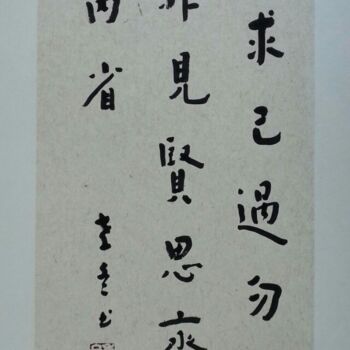 求己過勿
非見賢思齊
內省